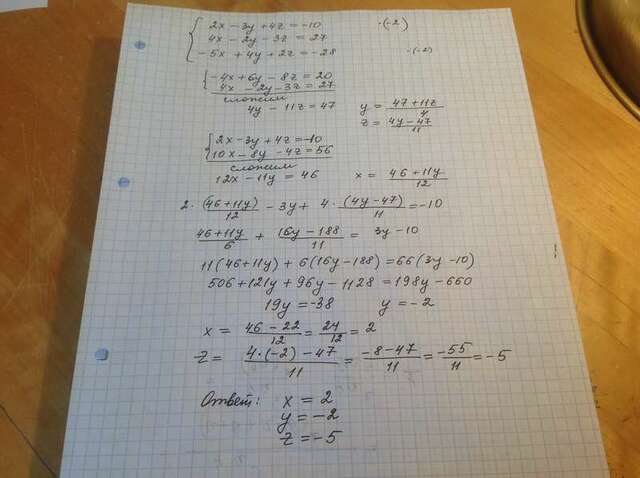 2x - 3y + 4z = -10 ·(-2)
4x - 2y - 3z = 27
-5x + 4y + 2z = -28 ·(-2)
-4x + 6y - 8z = 20
4x - 2y - 3z = 27
сложим
4y - 11z = 47 y = (47 + 11z)/4
z = (4y - 47)/11
2x - 3y + 4z = -10
10x - 8y - 4z = 56
сложим
12x - 11y = 46 x = (46 + 11y)/12
2 · (46 + 11y)/12 - 3y + 4 · (4y - 47)/11 = -10
(46 + 11y)/6 + (16y - 188)/11 = 3y - 10
11(46 + 11y) + 6(16y - 188) = 66(3y - 10)
506 + 121y + 96y - 1128 = 198y - 660
19y = -38 y = -2
x = (46 - 22)/12 = 24/12 = 2
z = (4·(-2) - 47)/11 = (-8 - 47)/11 = -55/11 = -5
Ответ: x = 2
y = -2
z = -5